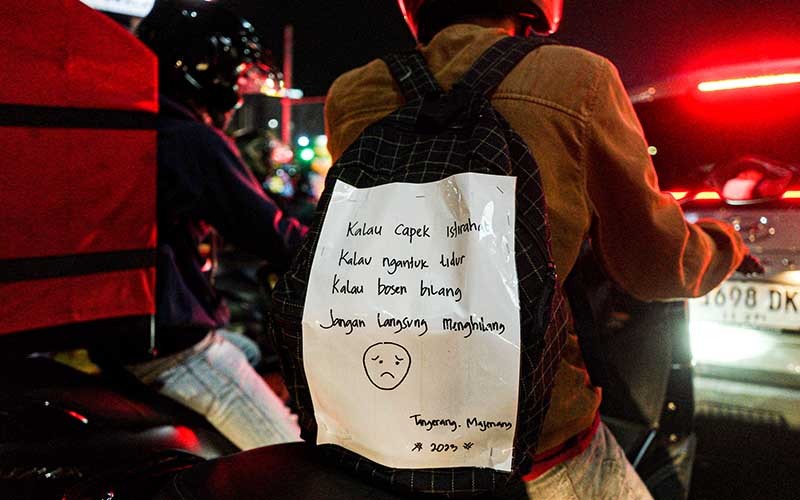 Kalau Capek Istirahat
Kalau ngantuk tidur
Kalau bosen bilang
Jangan Langsung menghilang
Tangerang. Majenang
2023
1698 DK